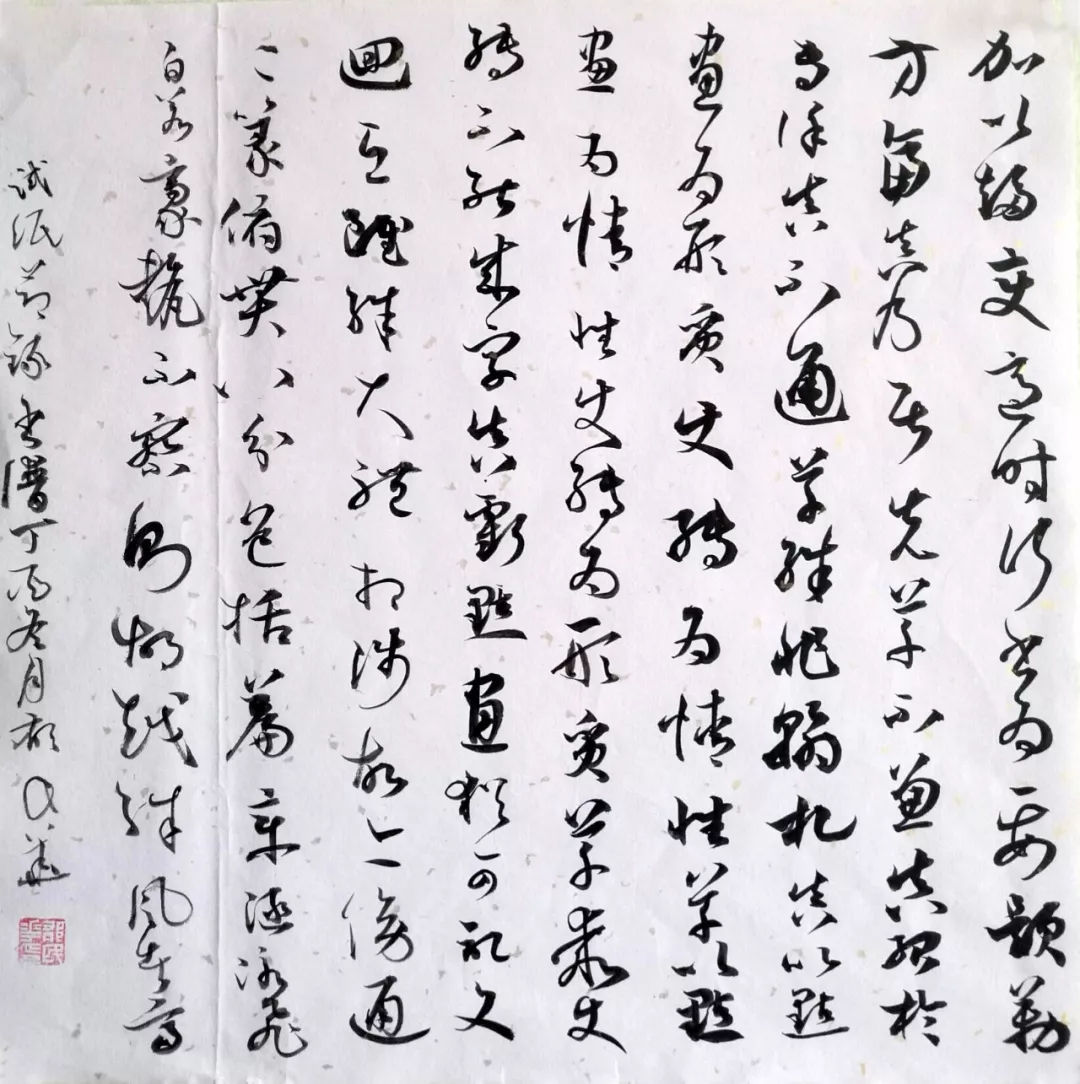 加以趨變適時行書為要題勒
方畐真乃居先草不兼真殆於
專謹真不通草殊非翰札真以點
畫為形質使轉為情性草以點
畫為情性使轉為形質草乖使
轉不能成字真虧點畫猶可記文
迴互雖殊大體相涉故亦傍通
二篆俯貫八分包括篇章涵泳飛
白若豪氂不察則胡越殊風者焉
試紙節錄書譜丁酉冬月邵